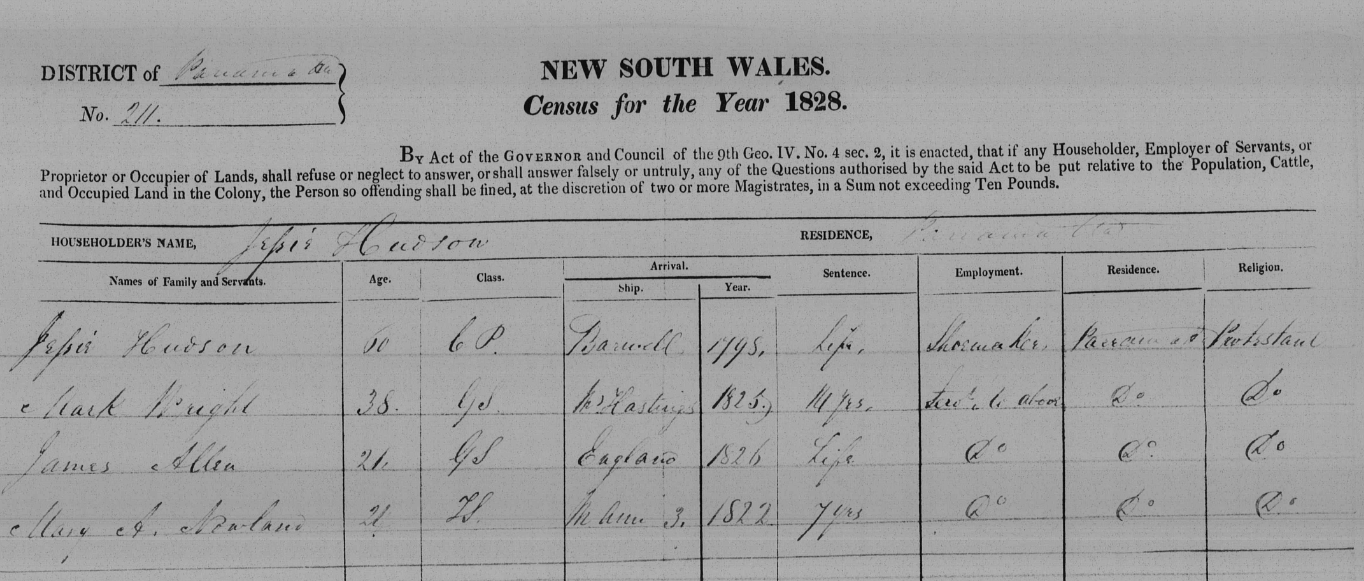 DISTRICT of Parramatta
NEW SOUTH WALES.
No. 211.
Census for the Year 1828.
BY Act of the GOVERNOR and Council of the 9th Geo. IV. No. 4 sec. 2, it is enacted, that if any Householder, Employer of Servants, or
Proprietor or Occupier of Lands, shall refuse or neglect to answer, or shall answer falsely or untruly, any of the Questions authorised by the said Act to be put relative to the Population, Cattle,
and Occupied Land in the Colony, the Person so offending shall be fined, at the discretion of two or more Magistrates, in a Sum not exceeding Ten Pounds.
HOUSEHOLDER'S NAME, Jessie Hudson RESIDENCE, Parramatta
Names of Family and Servants. Age. Class. Arrival. Ship. Year. Sentence. Employment. Residence. Religion.
Jessie Hudson 60 C P. Barwell 1798. Life. Shoemaker. Parramatta Protestant
Mark Wright 38. GS. Hastings 1825 14 yrs. Servt. to above Do Do
James Allen 26 GS England 1826 Life Do Do Do
Mary A. Newland 21 TS. M Ann 3. 1822 7 yrs Do Do Do